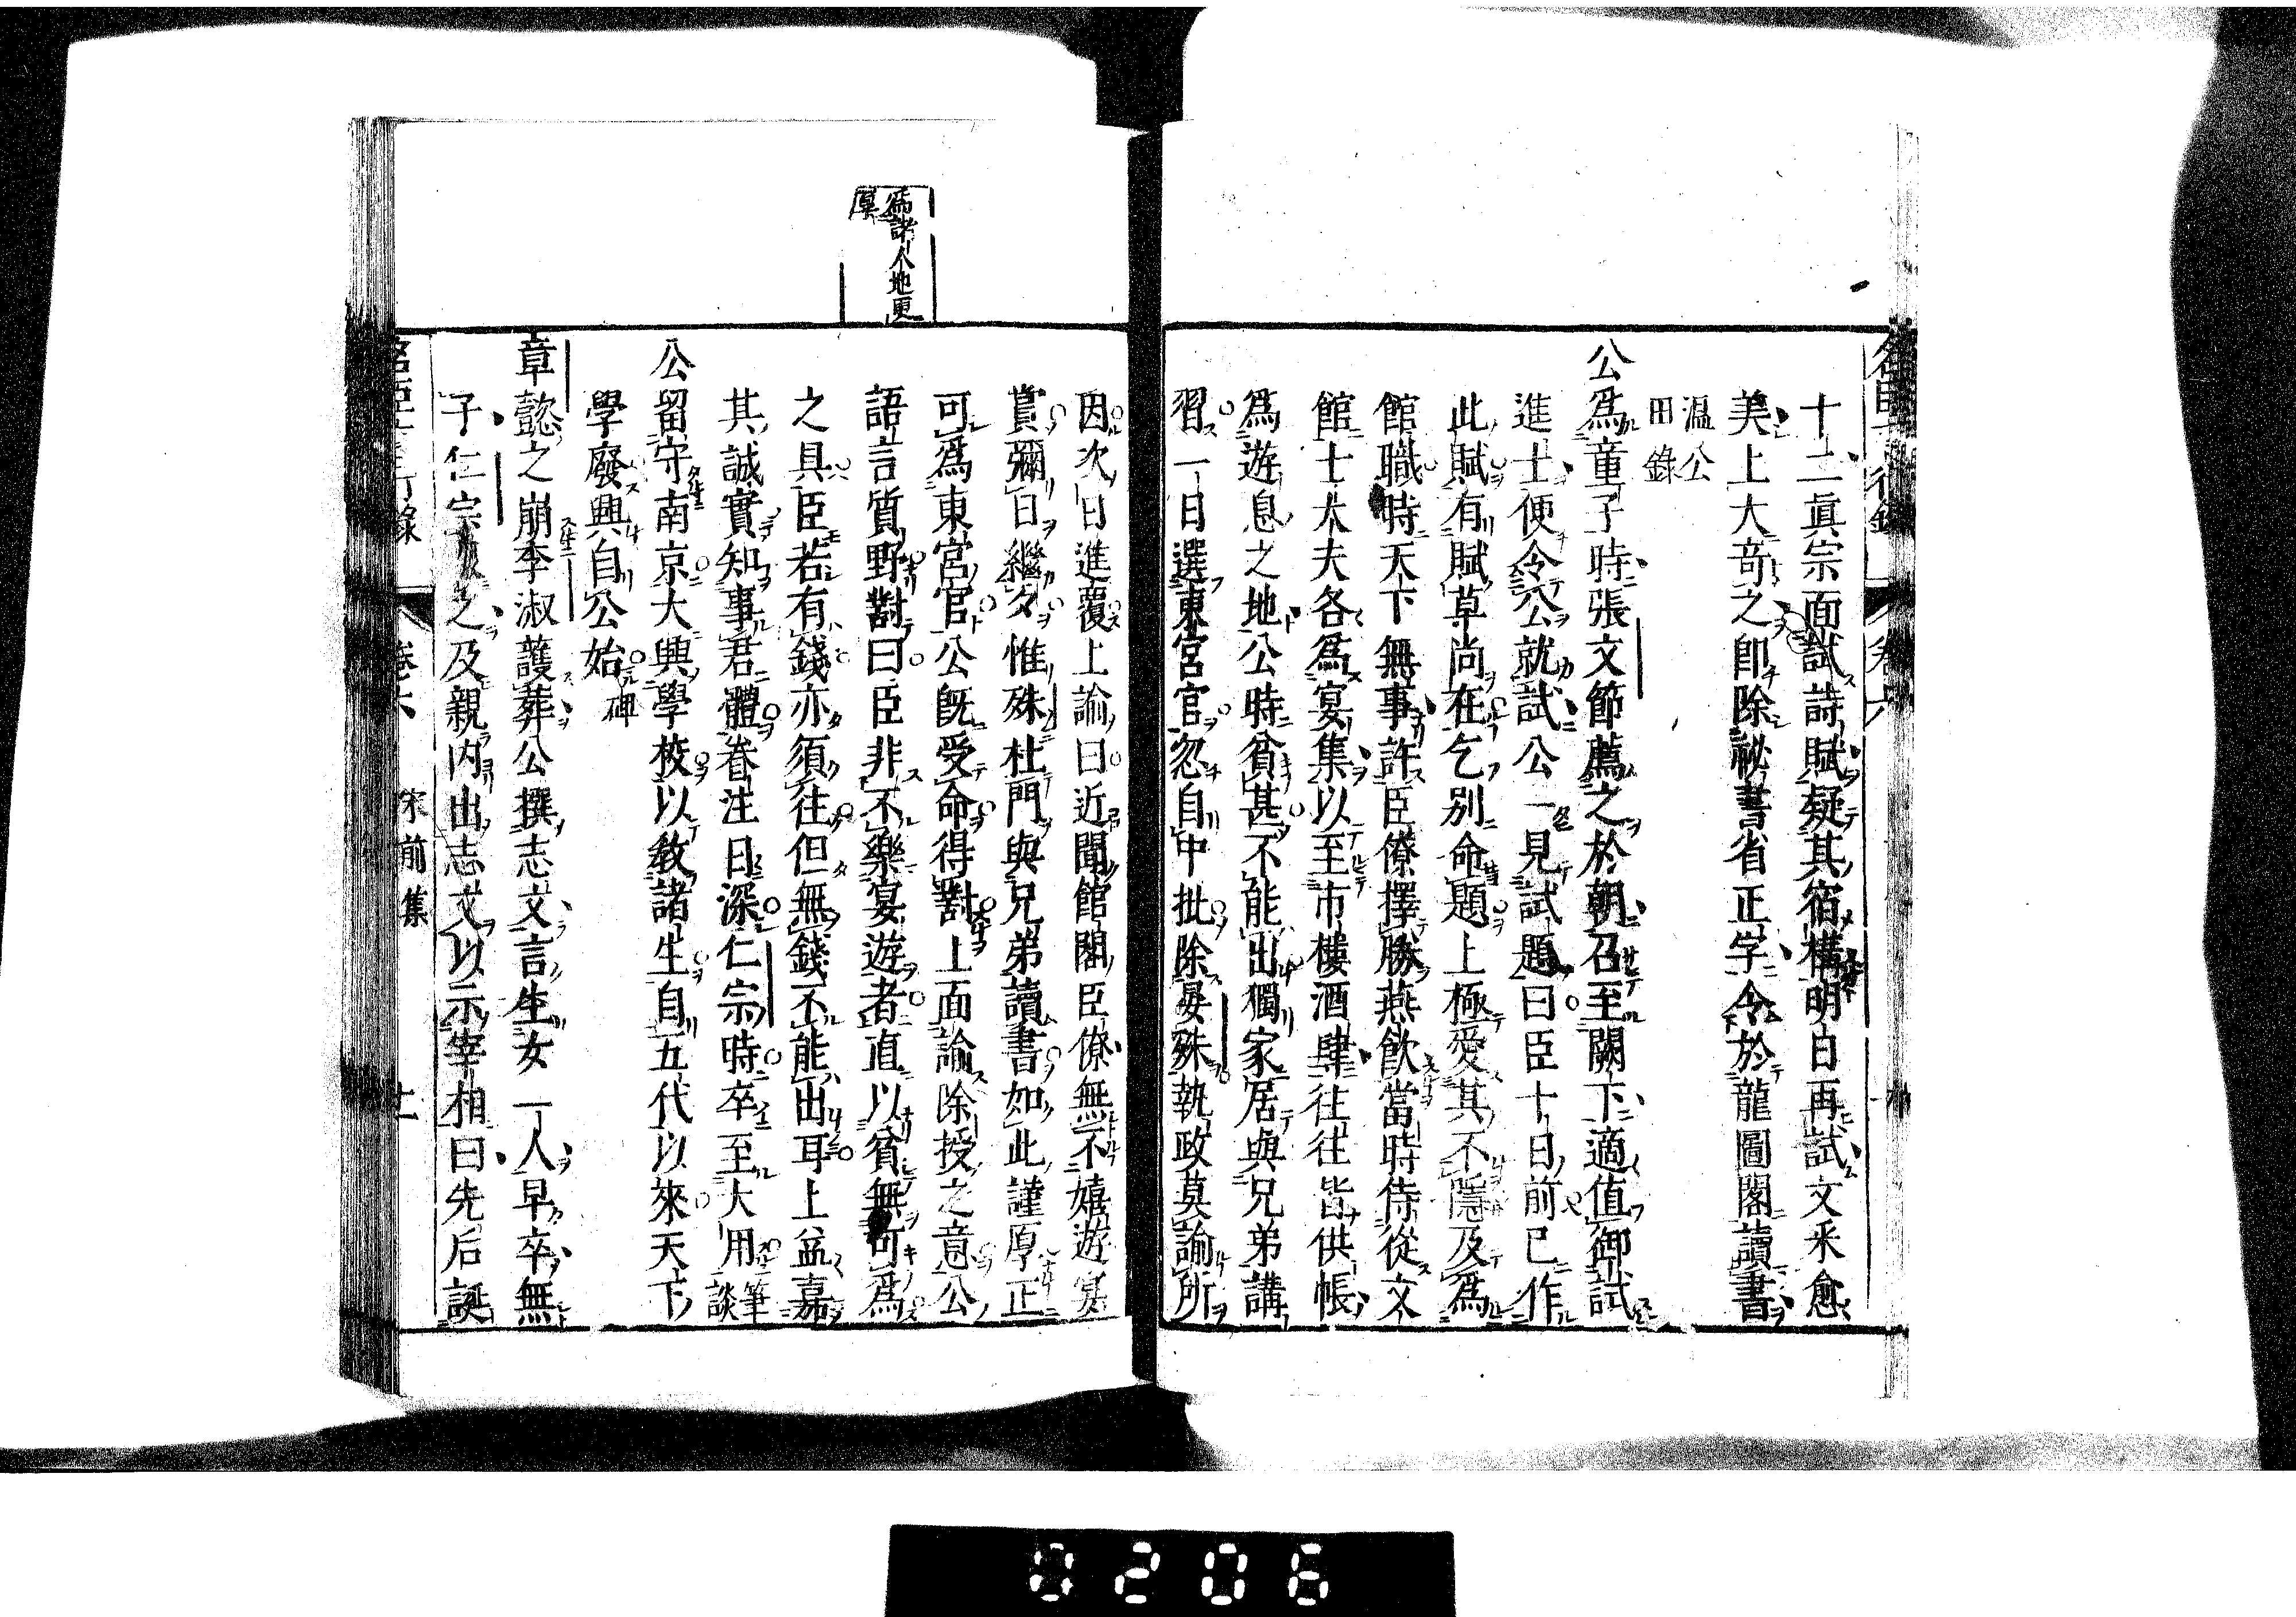 十二眞宗面試詩賦疑其宿構明日再試文采愈
美上大奇之卽除祕書省正字令於龍圖閣讀書
溫公
田錄
公爲童子時張文節薦之於朝召至闕下適値御試
進士便令公就試公一見試題曰臣十日前已作
此賦有賦草尚在乞別命題上極愛其不隱及爲
館職時天下無事許臣僚擇勝燕飮當時侍從文
館士大夫各爲宴集以至市樓酒肆往往皆供帳
爲遊息之地公時貧甚不能出獨家居與兄弟講
習一日選東宮官忽自中批除晏殊執政莫諭所
因次日進覆上諭曰近聞館閣臣僚無不嬉遊宴
賞彌日繼夕惟殊杜門與兄弟讀書如此謹厚正
可爲東宮官公旣受命得對上面諭除授之意公
語言質野對曰臣非不樂宴遊者直以貧無可爲
之具臣若有錢亦須往但無錢不能出耳上益嘉
其誠實知事君體眷注日深仁宗時卒至大用筆談
公留守南京大興學校以敎諸生自五代以來天下
學廢興自公始碑
章懿之崩李淑護葬公撰志文言生女一人早卒無
子仁宗恨之及親內出志文以示宰相曰先后誕
爲諸人地更
厚
名臣言行錄 卷六 宋前集 十一